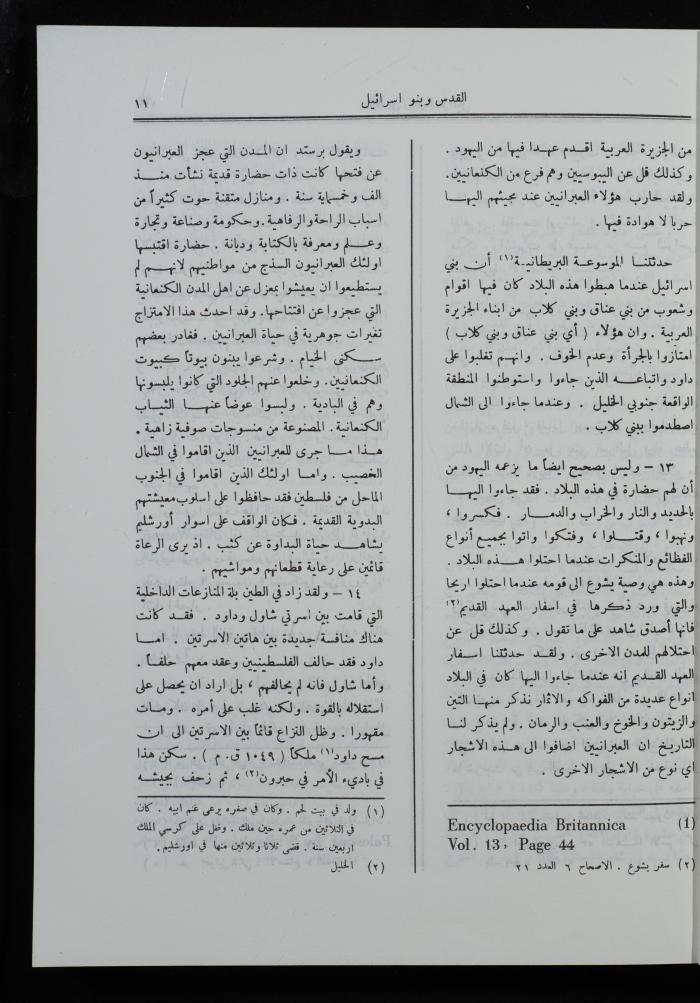 القدس وبنو اسرائيل
١١
من الجزيرة العربية اقدم عهدا فيها من اليهود .
وكذلك قل عن اليبوسيين وهم فرع من الكنعانيين.
ولقد حارب هؤلاء العبرانيين عند مجيئهم اليهـا
حربا لا هوادة فيها .
حدثتنـا الموسوعـة البريطانيـة(١) أن بني
اسرائيل عندما هبطوا هذه البلاد كان فيها اقوام
وشعوب من بني عناق وبني كلاب من ابناء الجزيرة
العربية . وان هؤلاء ( أي بني عناق وبني كلاب )
امتازوا بالجرأة وعدم الخوف . وانهـم تغلبوا على
داود واتباعـه الذين جاءوا واستوطنوا المنطقة
الواقعة جنوبي الخليل . وعندما جاءوا الى الشمال
اصطدموا ببني كلاب .
١٣ – وليس بصحيح ايضاً ما يزعمه اليهود من
أن لهم حضارة في هذه البلاد . فقد جاءوا اليهـا
بالحديد والنار والخراب والدمـار . فكسروا ،
ونهبوا ، وقتلـوا ، وفتكوا واتوا بجميـع أنواع
الفظائع والمنكرات عندما احتلوا هـذه البلاد .
وهذه هي وصية يشوع الى قومه عندما احتلوا اريحا
والتي ورد ذكرها في اسفار العهد القديم(٢)
فانها أصدق شاهد على ما تقول . وكذلك قل عن
احتلالهم للمدن الاخرى . ولقـد حدثتنا اسفـار
العهد القديم انه عندما جاءوا اليها كان في البلاد
انواع عديدة من الفواكه والاثمار نذكر منهـا التين
والزيتون والخوخ والعنب والرمان . ولم يذكر لنـا
التاريخ ان العبرانيين اضافوا الى هـذه الاشجار
اي نوع من الاشجار الاخرى .
(1) Encyclopaedia Britannica
Vol. 13, Page 44
(٢) سفر يشوع . الاصحاح ٦ العدد ٢١
ويقول برستد ان المـدن التي عجز العبرانيون
عن فتحها كانت ذات حضارة قديمة نشأت منـذ
الف وخمسماية سنة . ومنازل متقنة حوت كثيراً من
اسباب الراحة والرفاهية . وحكومة وصناعة وتجارة
وعـلم ومعرفة بالكتابة وديانة . حضارة اقتبسها
اولئك العبرانيون السذج من مواطنيهم لانهـم لم
يستطيعوا ان يعيشوا بمعزل عن اهل المدن الكنعانية
التي عجزوا عن افتتاحها. وقد احدث هذا الامتزاج
تغيرات جوهرية في حياة العبرانيين . فغادر بعضهم
سـكنى الخيام . وشرعوا يبنون بيوتاً كبيوت
الكنعانيين . وخلعوا عنهم الجلود التي كانوا يلبسونها
وهم في البادية . ولبسوا عوضاً عنهـا الثيـاب
الكنعانية. المصنوعة من منسوجات صوفية زاهية .
هـذا مـا جرى للعبرانيين الذين اقاموا في الشمال
الخصيب . وامـا اولئك الذين اقاموا في الجنوب
الماحل من فلسطين فقد حافظوا على اسلوب معيشتهم
البدوية القديمة . فكان الواقف على اسوار أورشليم
يشاهـد حياة البداوة عن كثب . اذ يرى الرعاة
قائمين على رعاية قطعانهم ومواشيهم .
١٤ – ولقد زاد في الطين بلة المنازعات الداخلية
التي قامت بين اسرتي شاول وداود . فقـد كانت
هناك منافسة جديدة بين هاتين الاسرتين . امـا
داود فقد حالف الفلسطينيين وعقد معهم حلفـاً .
وأما شاول فانه لم يحالفهم ، بل اراد ان يحصل على
استقلاله بالقوة . ولكنه غلب على أمره . ومـات
مقهورا . وظل النزاع قائماً بين الاسرتين الى ان
مسح داود(١) ملكاً ( ١٠٤٩ ق. م ) . سكن هذا
في باديء الأمر في حبرون(٢) ، ثم زحف بجيشـه
(١) ولد في بيت لحم . وكان في صغره يرعى غنم ابيه . كان
في الثلاثين من عمره حين ملك . وظل على كرسي الملك
اربعين سنة . قضى ثلاثا وثلاثين منها في اورشليم .
(٢) الخليل